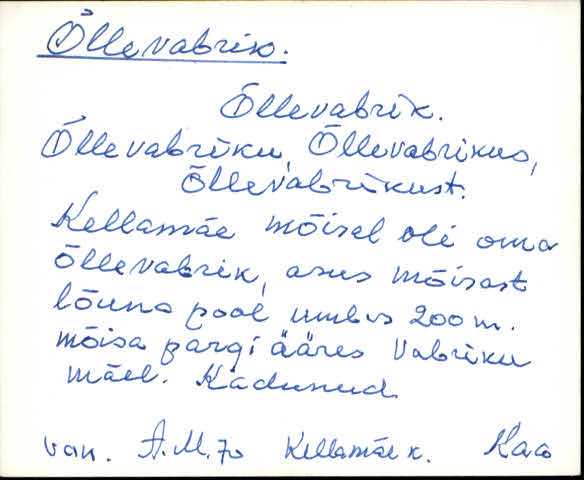 Õllevabrik.
Õllevabrik.
Õllevabriku, Õllevabrikus,
Õllevabrikust.
Kellamäe mõisal oli oma
õllevabrik, asus mõisast
lõuna pool umbes 200 m.
mõisa pargi ääres Vabriku
mäel. Kadunud.
van. A.M. 70 Kellamäe k. Kaa